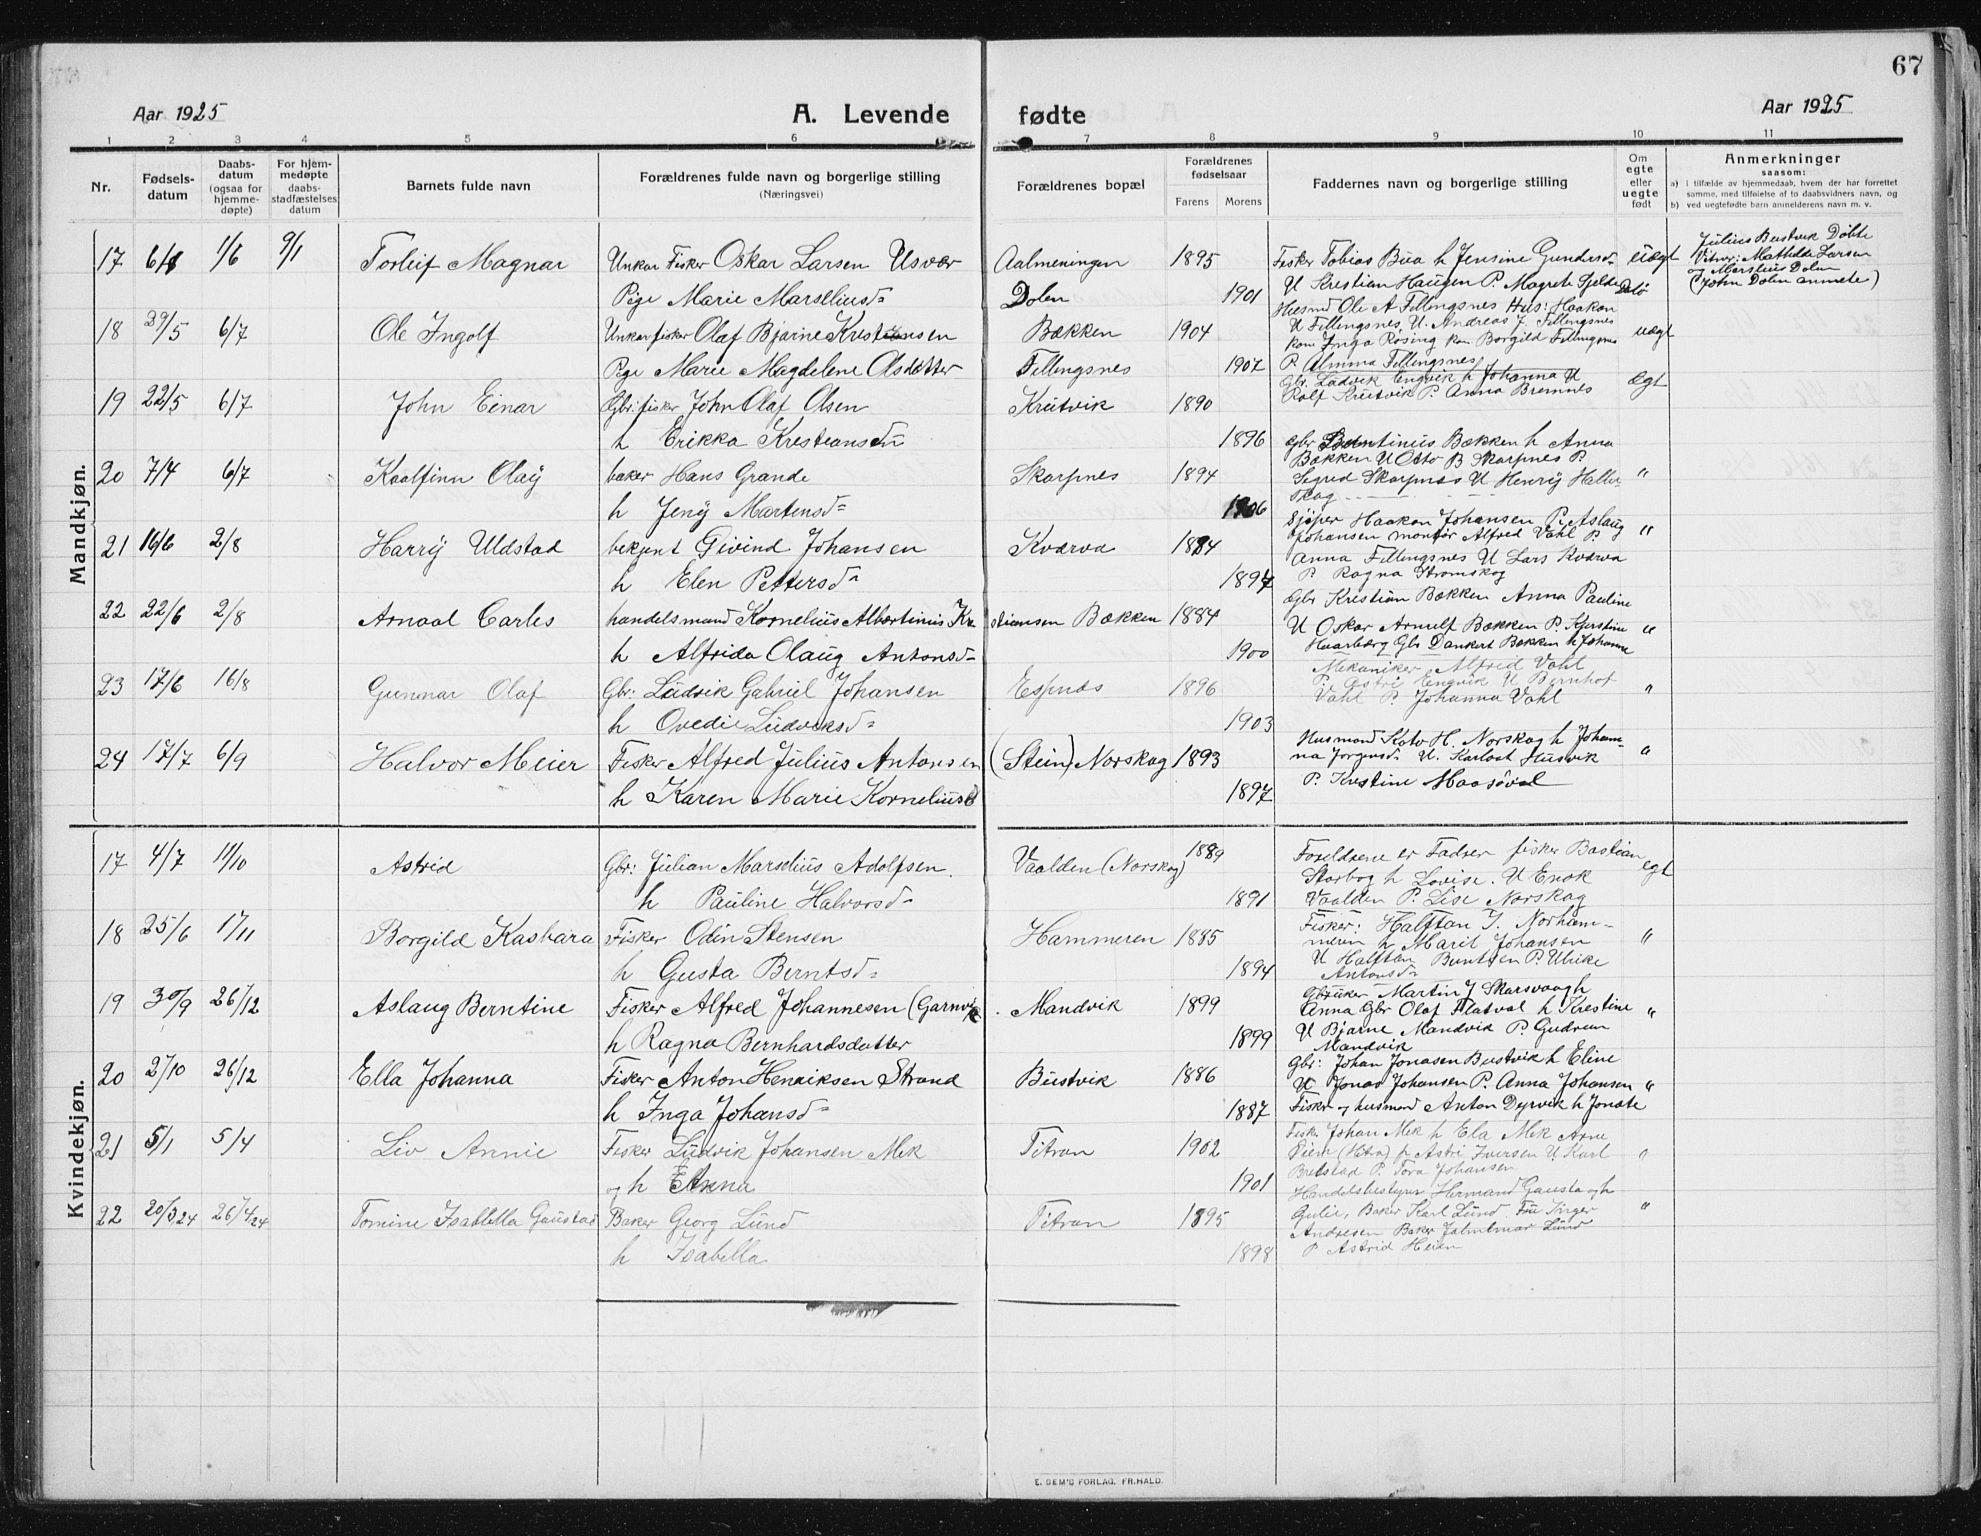 67
Aar 1925
A. Levende fødte
Aar 1925
1 2 3 4 5 6 7 8 9 10 11
Nr.
Fødsels-
datum
Daabs-
datum
(ogsaa for
hjemme-
døpte)
For hjem-
medøpte
daabs-
stadfæstelses
datum
Barnets fulde navn
Forældrenes fulde navn og borgerlige stilling
(Næringsvei)
Forældrenes bopæl
Forældrenes
fødselsaar
Farens Morens
Faddernes navn og borgerlige stilling
Om
egte
eller
uegte
født
Anmerkninger
saasom:
a) I tilfælde av hjemmedaab, hvem der har forrettet
samme, med tilføielse af to daabsvidners navn, og
b) ved uegtefødte barn anmelderens navn m. v.
Mandkjøn.
17 1/6 9/1 Torleif Magnar Unkar Fisker Oskar Larsen Usvær Aalmeningen 1895 Fisker Tobias Bua h Jensine Gundersd= uægt
Pige Marie Marseliusd= Dolen 1901 U Kristian Haugen P. Magrete Sjelde
Julius Bustvik Døbte
Vitner: Mathilde Larsen
og Marselius Dolen
(John Dolen anmelte)
18 29/5 6/7 Ole Ingolf Unkar fisker Olaf Bjarne Kristiansen Bækken 1904 Husmd Ole A Fillingsnes Hus: Haakon
U Fillingsnes, U. Andreas J. Fillingsnes uægt
kom Inga Røsing kom Borgild Fillingsnes
Pige Marie Magdelene Olsdatter Fillingsnes 1907 P. Almina Fillingsnes
19 22/5 6/7 John Einar Gbr: fisker John Olaf Olsen Krutvik 1890 Gbr. Ludvik Engvik h Johanna U Ægt
Rolf Krutvik P. Anna Bremnes
h Erikka Kristiansdn 1896 Gbr Berntinius Bækken h Anna
20 7/4 6/7 Kaalfinn Olay baker Hans Grande Skarpnes 1894 Bækken U Otto B Skarpnes P
Sigrid Skarpnes U Henry Haller- "
h Jeny Martensd= 1906 skog
21 16/6 2/8 Harry Uldstad Eivind Johansen Kværva 1884 Haakon Johansen P. Aslaug
Johansen montør Alfred Vahl P "
h Elen Pettersd= 1897 Anna Fillingsnes U Lars Kværva
P. Ragna Strømskog
22 22/6 2/8 Arnaal Carles handelsmand Kornelius Albertinius Kristiansen Bækken 1884 Gbr Kristian Bækken Anna Pauline
U Oskar Arnulf Bækken P. Kjerstine "
h Alfrida Olaug Antonsd= 1900 Gbr Dankert Bækken h Johanna
23 17/6 16/8 Gunnar Olaf Gbr: Ludvik Gabriel Johansen Espnæs 1896 Mekaniker Alfred Vahl
P. Astri Engvik U Bernhof "
h Ovedie Ludviksd= 1903 Vahl P. Johanna Vahl
24 17/7 6/9 Halvor Meier Fisker Alfred Julius Antonsen (Stein) Norskag 1893 Husmand Kato H. Norskag h Johan-
na Jørginsd= U. Karloat Husvik "
h Karen Marie Korneliusd 1897 P. Kristine Maasøval
Kvindekjøn.
17 4/7 11/10 Astrid Gbr: Julian Marselius Adolfsen. Vaalden (Norskag) 1889 Foreldrene er Fadrer fisker Bastian
Storbog h Lovise. U Enok egt
h Pauline Halvorsd= 1891 Vaalden P. Lise Norskag
18 25/6 17/11 Borgild Kasbara Fisker Odin Stensen Hammeren 1885 Fisker: Halftan J. Norham-
meren h Marit Johansen "
h Gusta Berntsd= 1894 U Halftan Buntsen P. Ulrike
Antonsd=
19 30/9 26/12 Aslaug Berntine Fisker Alfred Johannesen (Garnvik Mandvik 1899 Gbruker Martin J Skarsvaagh
Anna Gbr Olaf Flatval h Kristine "
h Ragna Bernhardsdatter 1899 U Bjarne Mandvik P. Gudrun
Mandvik
20 2/10 26/12 Ella Johanna Fisker Anton Henriksen Strand Bustvik 1886 Gbr: Johan Jonasen Bustvik h Eline
U Jonas Johansen P. Anna Johansen "
h Inga Johansd= 1887 Fisker og husmand Anton Dyrvik h Jonate
21 5/1 5/4 Liv Annie Fisker Ludvik Johansen Mek Titran 1902 Fisker Johan Mek h Ela Mek Arne
Øien (Hitra) P Astri Iversen U. Karl "
og h Anna 1901 Bretstad P. Tora Johansen
22 20/3 24 26/4 24 Tomine Isabella Gaustad Baker Georg Lund Titran 1895 Handelsbestyrer Hermand Gausta og h
Gulie, Baker Karl Lund. Inger "
Andresen Baker Lund
h Isabella 1898 P Astrid Heian
E. SEM'S FORLAG, FR.HALD.